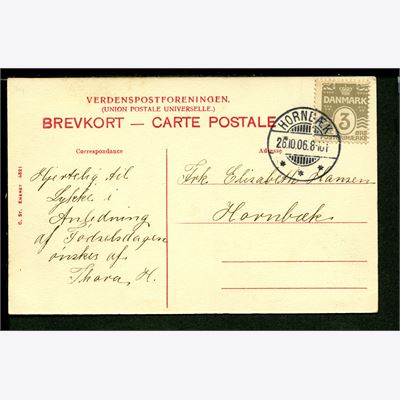 VERDENSPOSTFORENINGEN.
(UNION POSTALE UNIVERSELLE.)
BREVKORT — CARTE POSTALE
Correspondance
Adresse
DANMARK
3
ØRE
POSTFRIMÆRKE
HORNBÆK
26.10.06.8-10F
Hjertelig til
Lykke i
Anledning
af Fødselsdagen
ønskes af
Thora H.
Frk. Elisabeth Hansen
Hornbæk